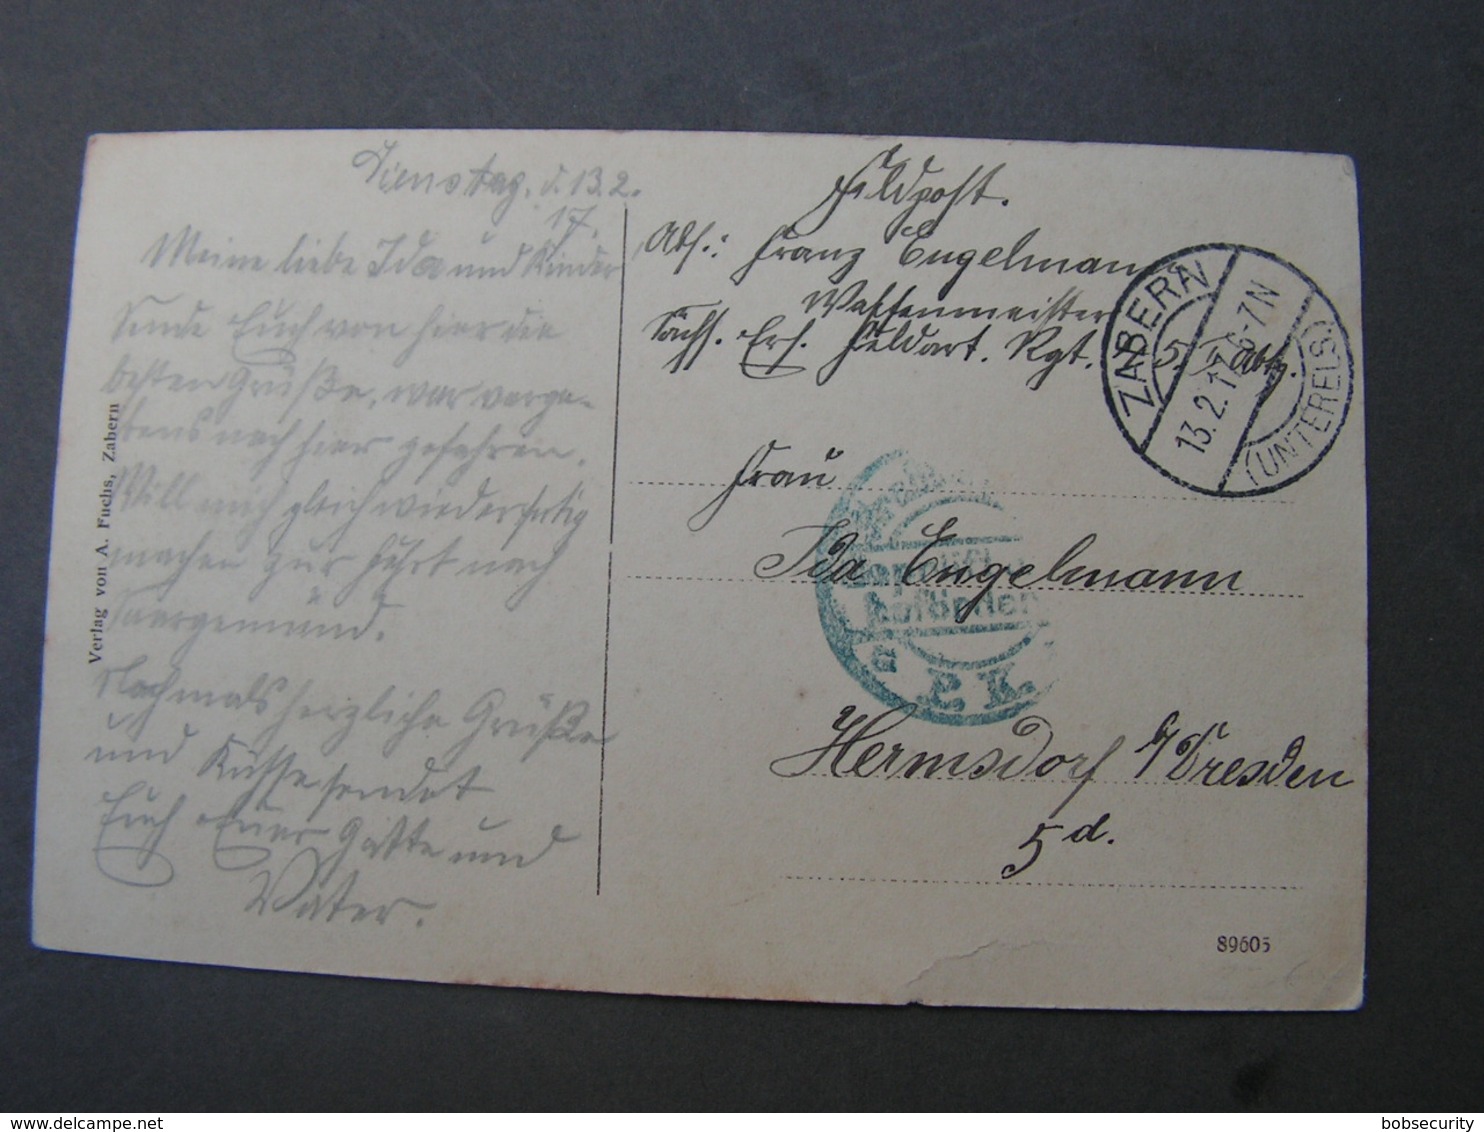 Dienstag. d. 13.2.
17.
Meine liebe Ida und Kinder
Sende Euch von hier die
besten Grüße, war verge-
bens nach hier gefahren.
Will mich gleich wieder fertig
machen zur Fahrt nach
Saargemünd.
Nochmals herzliche Grüße
und Küsse sendet
Euch Euer Gatte und
Vater.
Verlag von A. Fuchs, Zabern
Feldpost.
Abs.: Franz Engelmann
Waffenmeister
Sächs. Ers. Feldart. Rgt. 5. Abtg.
ZABERN
13.2.17. 6-7N
(UNTERELS.)
Frau
Ida Engelmann
befördern
P. K.
Hermsdorf b/Dresden
5 d.
89605
bobsecurity